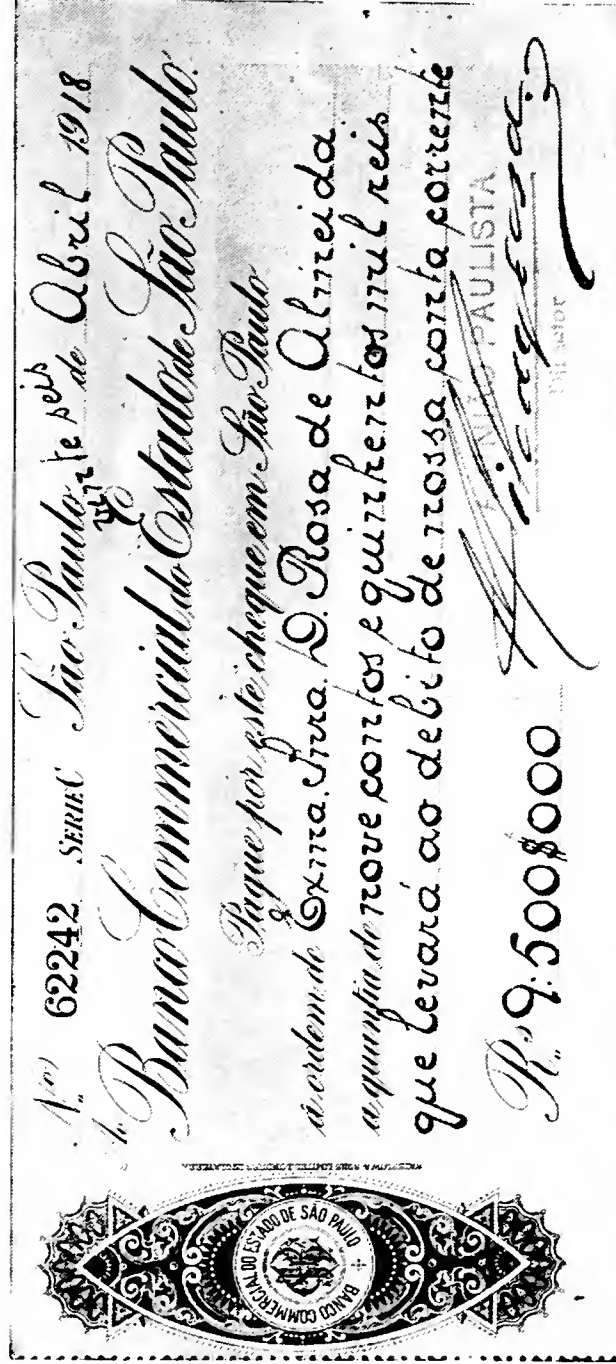 N.º 62242 SERIE C São Paulo, vinte seis de Abril 1918
Ao Banco Commercial do Estado de São Paulo.
Pague por este cheque em São Paulo
á ordem de Exma. Snra. D. Rosa de Almeida
a quantia de nove contos e quinhentos mil reis
que levará ao debito de nossa conta corrente
R.s 9:500$000
PAULISTA
Director
BANCO COMMERCIAL DO ESTADO DE SÃO PAULO